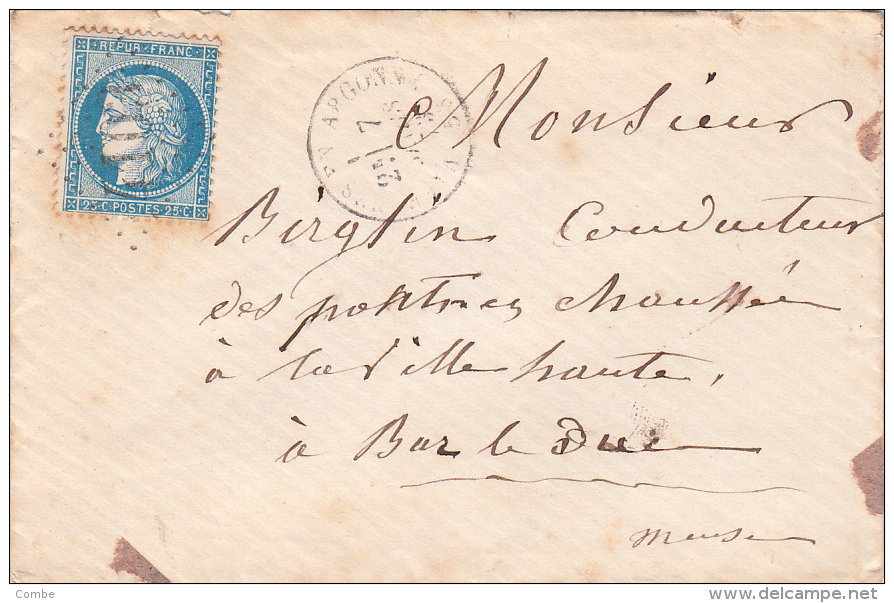 REPUB·FRANC·
25·C·POSTES·25·C
EN ARGONNE
7
2E
Monsieur
Birglin Conducteur
des ponts et chaussée
à la ville haute,
à Bar le Duc
Meuse
Combe
www.delcampe.net